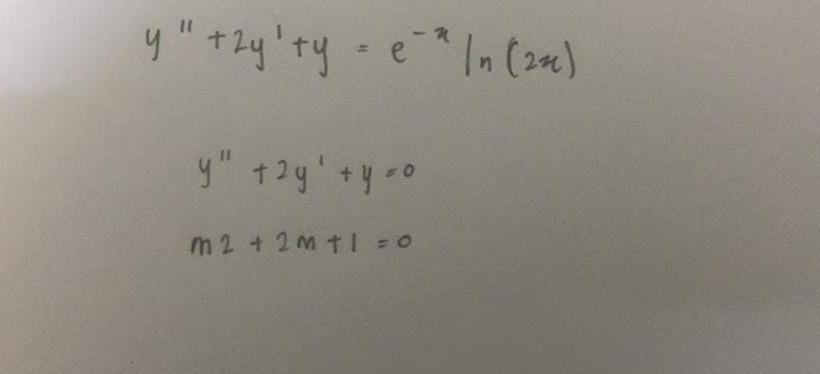 y'' + 2y' + y = e^-x ln (2x)
y'' + 2y' + y = 0
m2 + 2m + 1 = 0